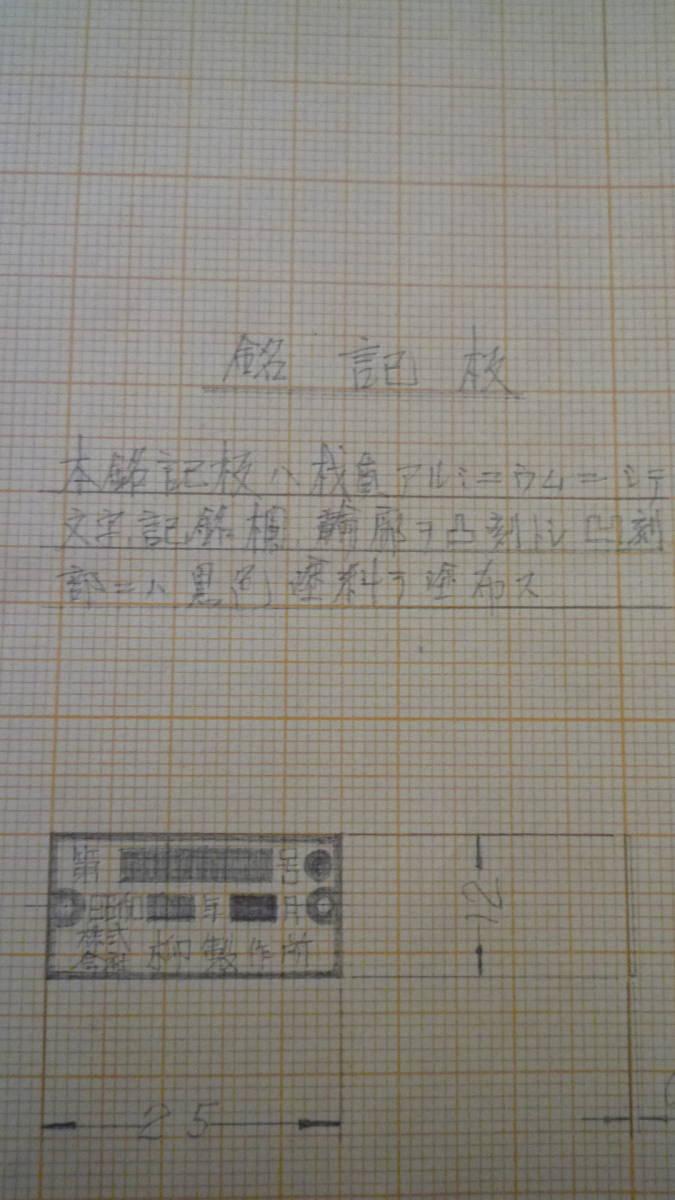 銘記板
本銘記板ハ材質アルミニウムニシテ
文字、記銘欄、輪廓ヲ凸刻トシ凹刻
部ニハ黒色塗料ヲ塗布ス
第 号
昭和 年 月
株式会社 柳製作所
12
25